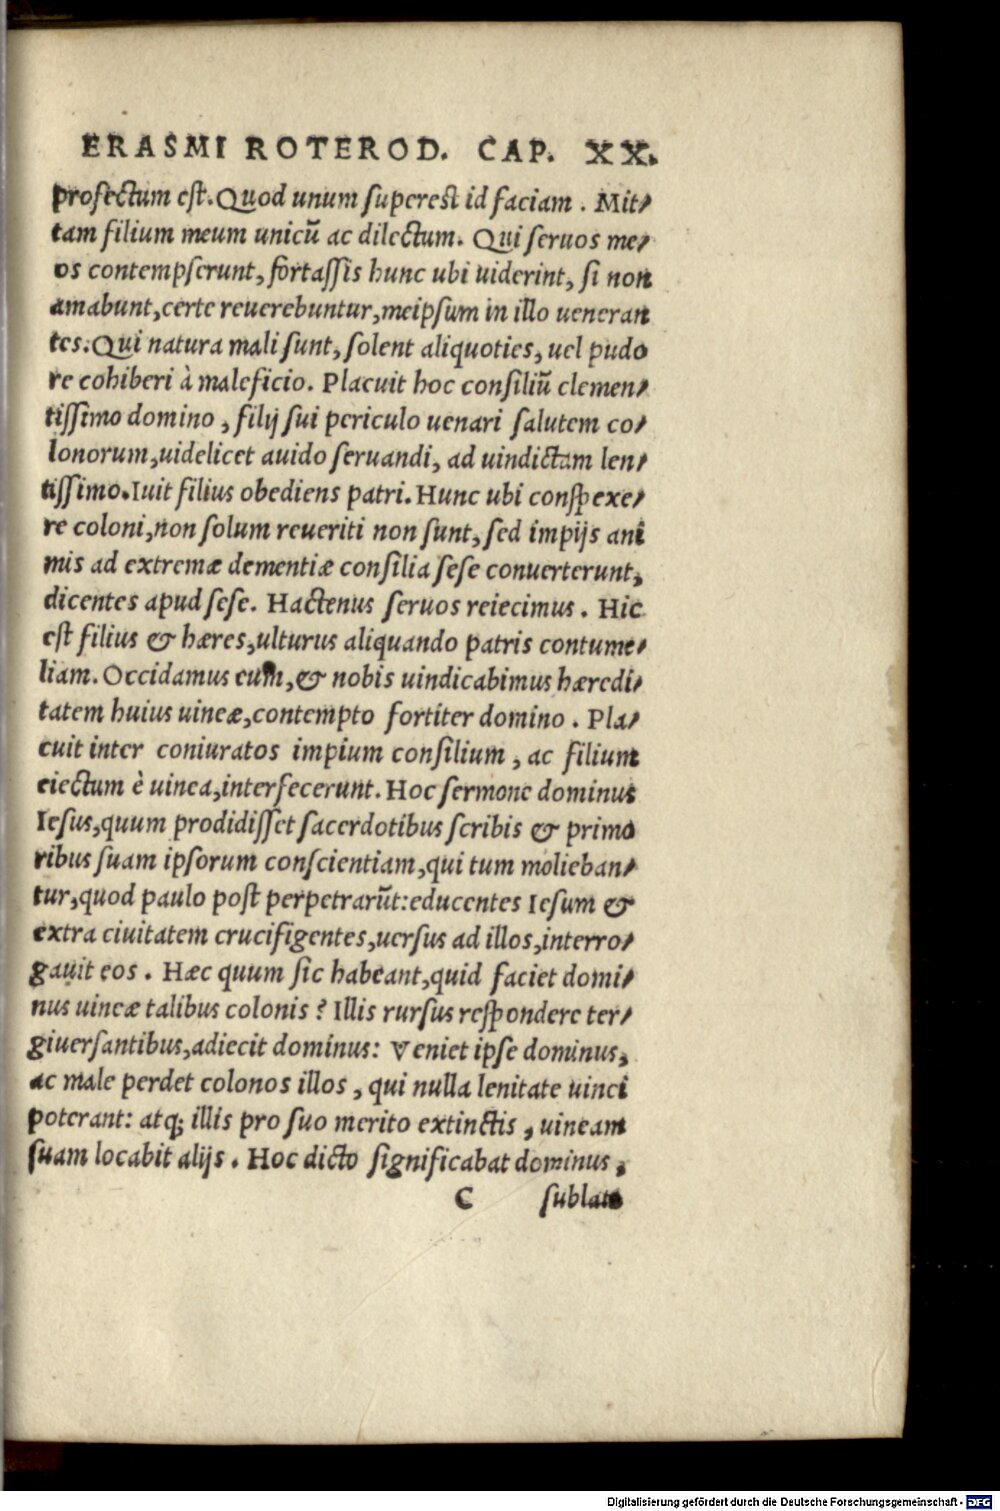 ERASMI ROTEROD. CAP. XX.
profectum est. Quod unum superest id faciam. Mit-
tam filium meum unicū ac dilectum. Qui seruos me-
os contempserunt, fortassis hunc ubi uiderint, si non
amabunt, certe reuerebuntur, meipsum in illo ueneran
tes. Qui natura mali sunt, solent aliquoties, uel pudo
re cohiberi à maleficio. Placuit hoc consiliū clemen-
tissimo domino, filij sui periculo uenari salutem co-
lonorum, uidelicet auido seruandi, ad uindictam len-
tissimo. Iuit filius obediens patri. Hunc ubi conspexe-
re coloni, non solum reueriti non sunt, sed impijs ani
mis ad extremæ dementiæ consilia sese conuerterunt,
dicentes apud sese. Hactenus seruos reiecimus. Hic
est filius & hæres, ulturus aliquando patris contume-
liam. Occidamus eum, & nobis uindicabimus hæredi-
tatem huius uineæ, contempto fortiter domino. Pla-
cuit inter coniuratos impium consilium, ac filium
eiectum è uinea, interfecerunt. Hoc sermone dominus
Iesus, quum prodidisset sacerdotibus scribis & primo
ribus suam ipsorum conscientiam, qui tum molieban-
tur, quod paulo post perpetrarūt: educentes Iesum &
extra ciuitatem crucifigentes, uersus ad illos, interro-
gauit eos. Hæc quum sic habeant, quid faciet domi-
nus uineæ talibus colonis? Illis rursus respondere ter-
giuersantibus, adiecit dominus: Veniet ipse dominus,
ac male perdet colonos illos, qui nulla lenitate uinci
poterant: atq; illis pro suo merito extinctis, uineam
suam locabit alijs. Hoc dicto significabat dominus,
C sublato
Digitalisierung gefördert durch die Deutsche Forschungsgemeinschaft - DFG